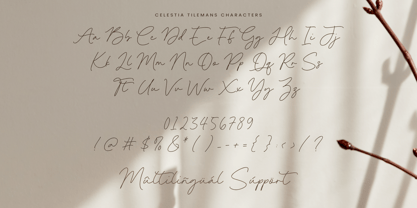 CELESTIA TILEMANS CHARACTERS
Aa Bb Cc Dd Ee Ff Gg Hh Ii Jj
Kk Ll Mm Nn Oo Pp Qq Rr Ss
Tt Uu Vv Ww Xx Yy Zz
0123456789
!@#$%&*()_-+={}:;,/?
Multilingual Support